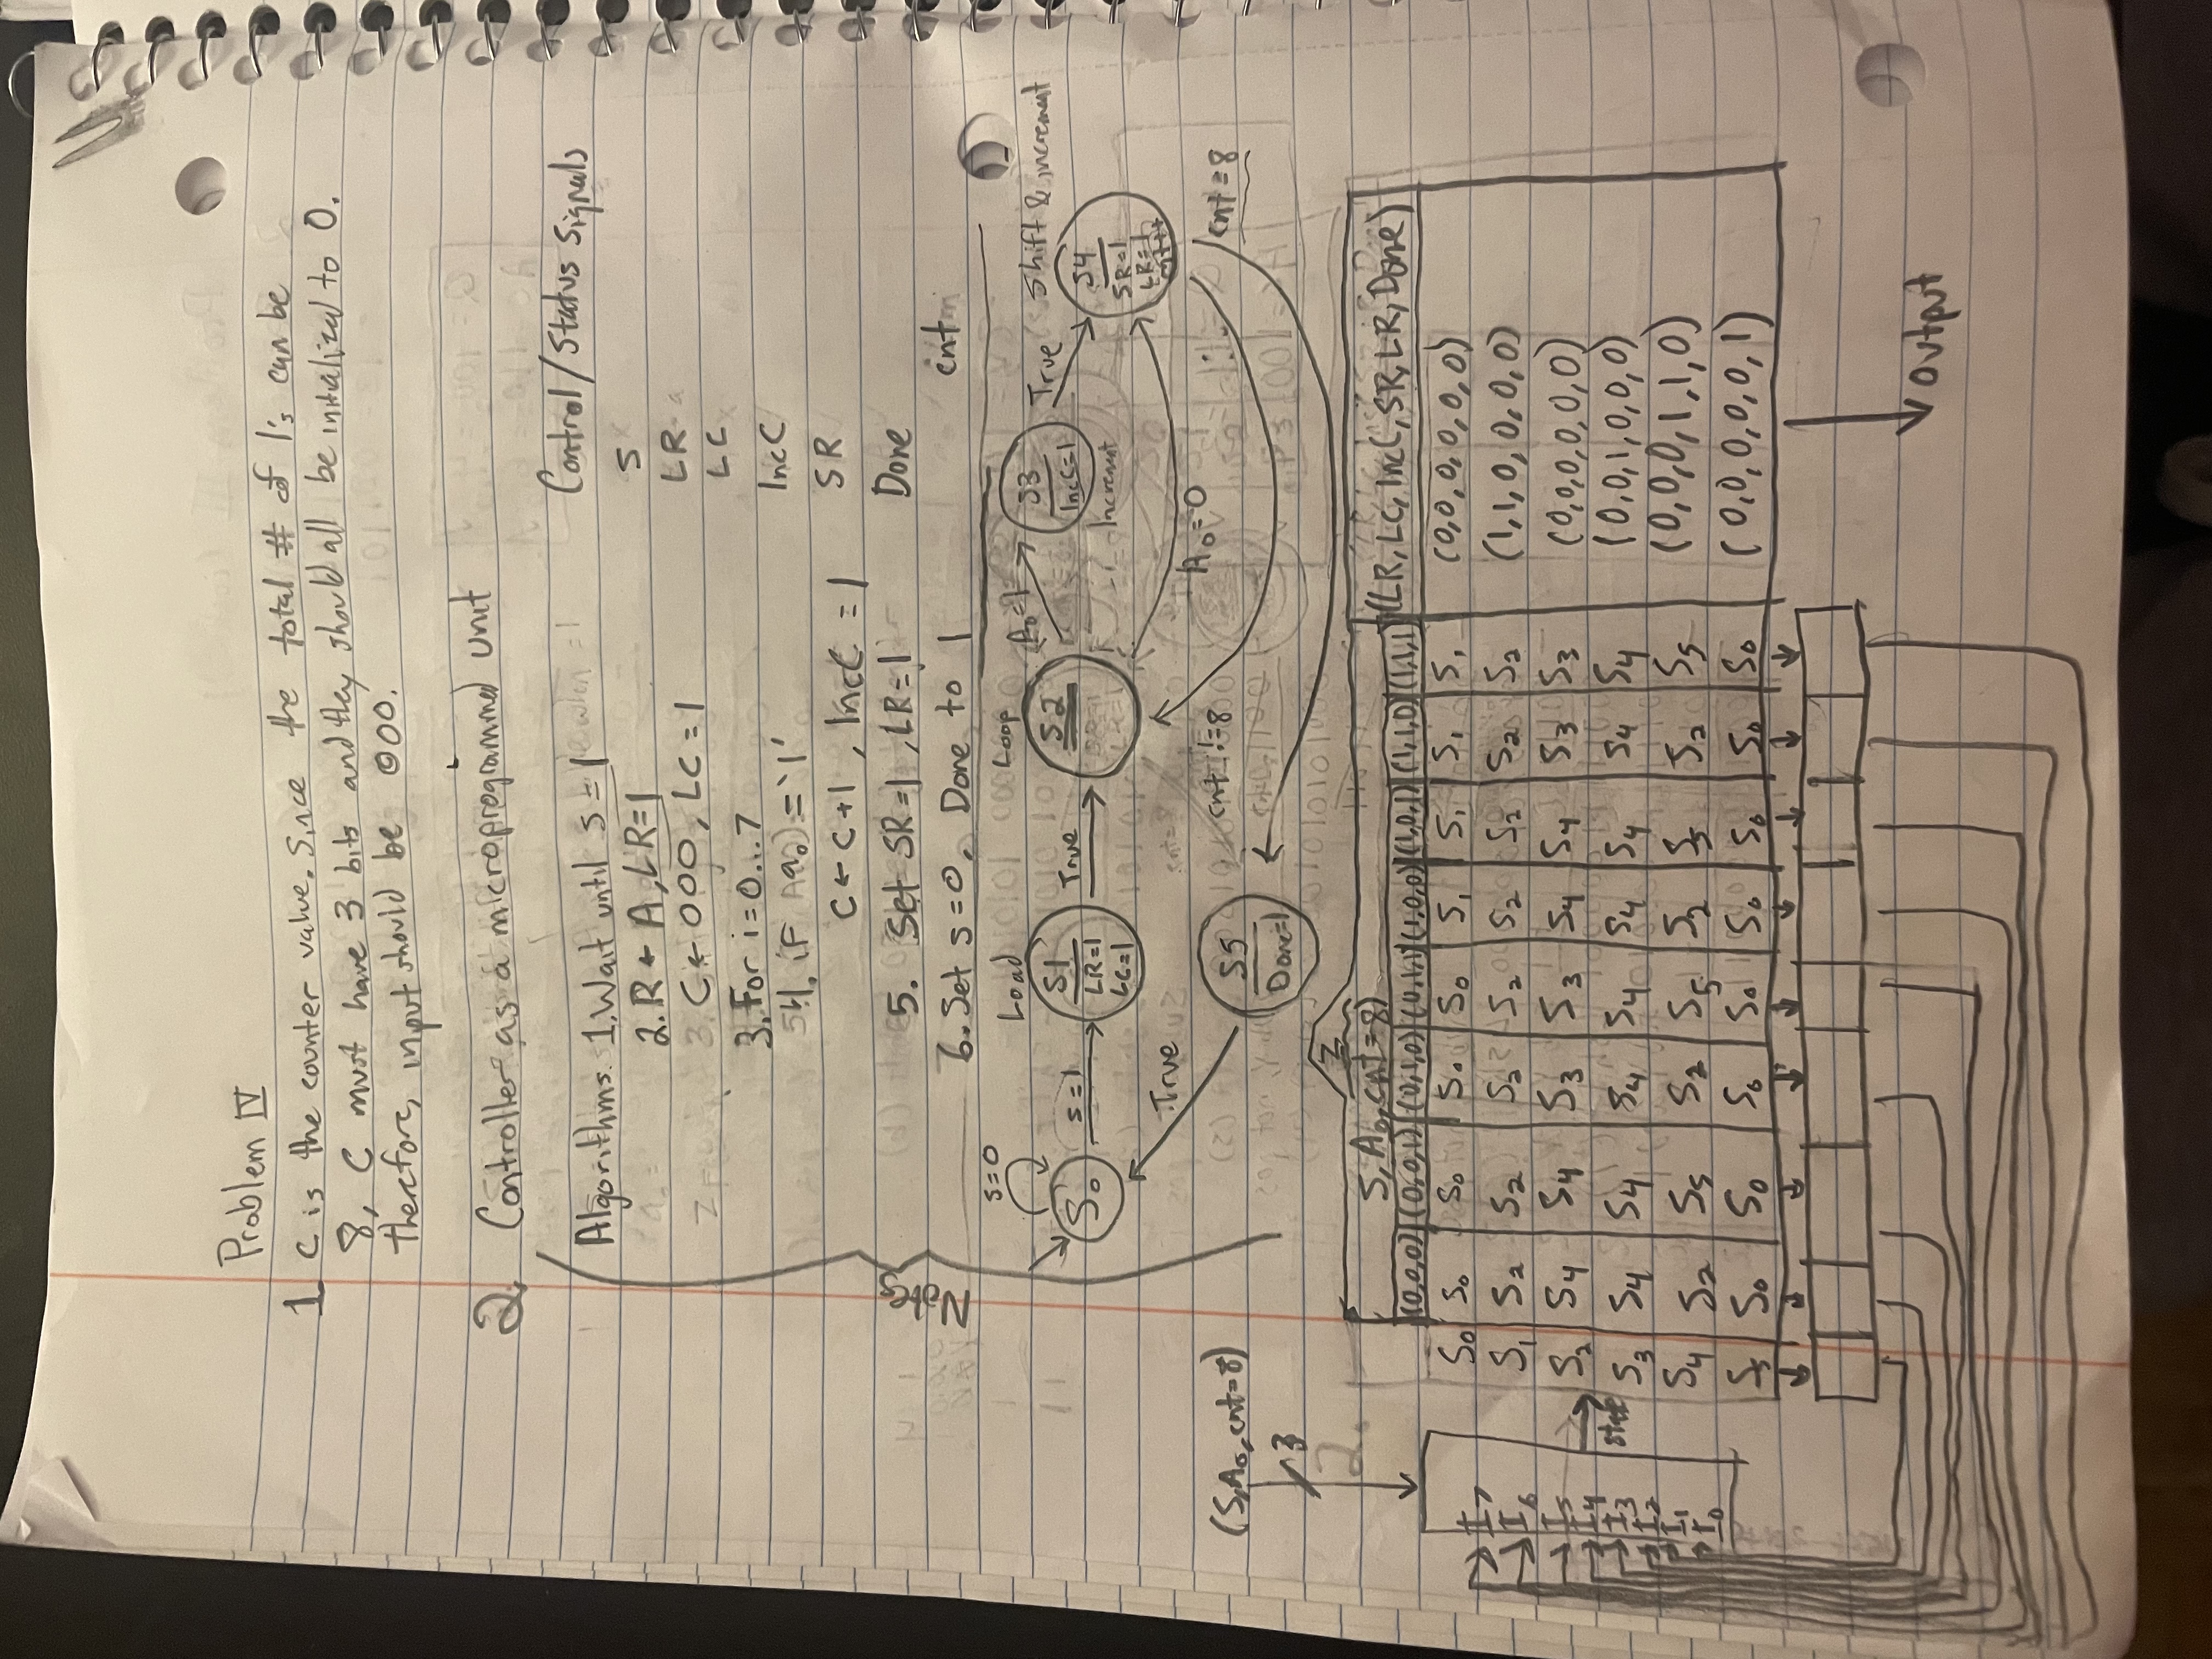 Problem IV
1 C is the counter value. Since the total # of 1's can be
8, C must have 3 bits and they should all be initialized to 0.
Therefore, input should be 000.
2. Controller as a microprogrammed unit
Notes
Algorithms. 1. Wait until S = 1
2. R ← A, LR=1
C ← 000, LC = 1
3. For i = 0...7
4. if a0 = '1'
C ← C + 1, IncC = 1
5. Set SR = 1, LR = 1
6. Set s = 0, Done to 1
Control/Status Signals
S
LR
LC
IncC
SR
Done
cnt
s=0
S0
s=1
Load
S1
LR=1
LC=1
True
Loop
S2
A0=1
S3
IncC=1
Increment
True
Shift & increment
S4
SR=1
LR=1
cnt++
A0=0
cnt != 8
cnt = 8
S5
Done=1
True
(S, A0, cnt=8)
3
2.
Z
S, A0, cnt=8)
(LR, LC, IncC, SR, LR, Done)
(0,0,0) (0,0,1) (0,1,0) (0,1,1) (1,0,0) (1,0,1) (1,1,0) (1,1,1)
S0 S0 S0 S0 S0 S1 S1 S1 S1 (0,0,0,0,0,0)
S1 S2 S2 S2 S2 S2 S2 S2 S2 (1,1,0,0,0,0)
S2 S4 S4 S3 S3 S4 S4 S3 S3 (0,0,0,0,0,0)
S3 S4 S4 S4 S4 S4 S4 S4 S4 (0,0,1,0,0,0)
S4 S2 S5 S2 S5 S2 S5 S2 S5 (0,0,0,1,1,0)
S5 S0 S0 S0 S0 S0 S0 S0 S0 (0,0,0,0,0,1)
I7
I6
I5
I4
I3
I2
I1
I0
state
output